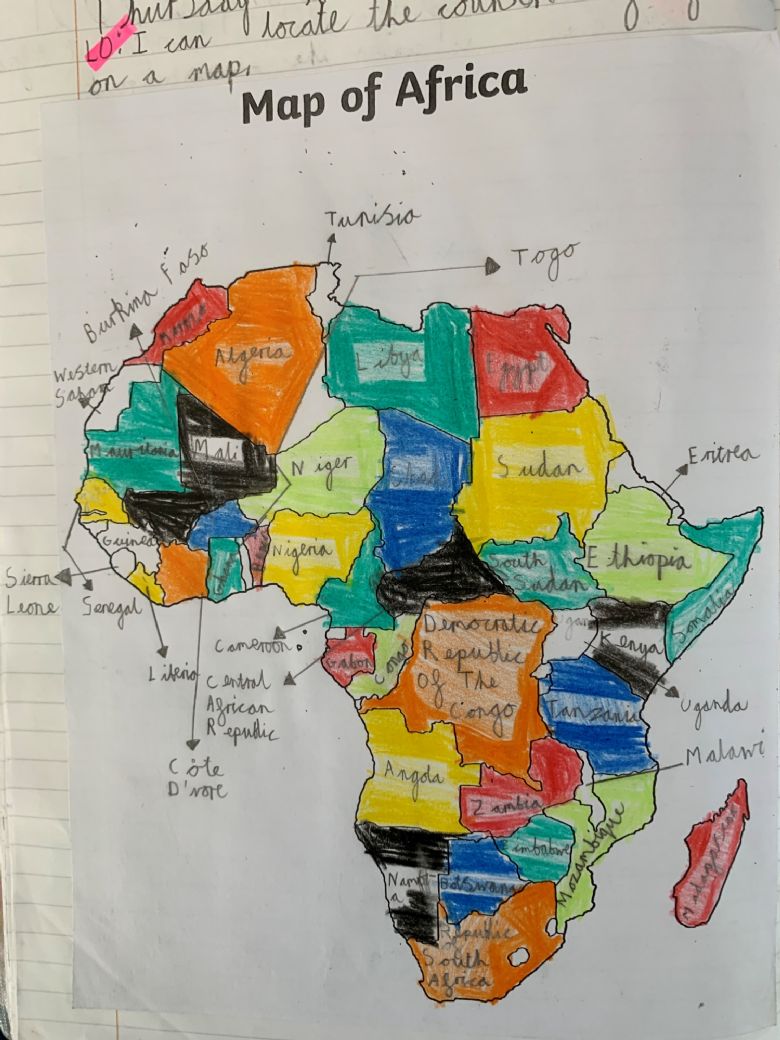 Thursday
LO: I can locate the
on a map.
Map of Africa
Tunisia
Togo
Burkina Faso
Western
Algeria
Libya
Egypt
Mauritania
Mali
Niger
Chad
Sudan
Eritrea
Guinea
Nigeria
South
Sudan
Ethiopia
Somalia
Sierra
Leone
Senegal
Liberia
Cameroon
Gabon
Congo
Democratic
Republic
Of The
Congo
Kenya
Uganda
Central
African
Republic
Tanzania
Côte
D'vore
Malawi
Angola
Zambia
Zimbabwe
Mozambique
Madagascar
Namibi
a
Botswana
Republic
of
South
Africa